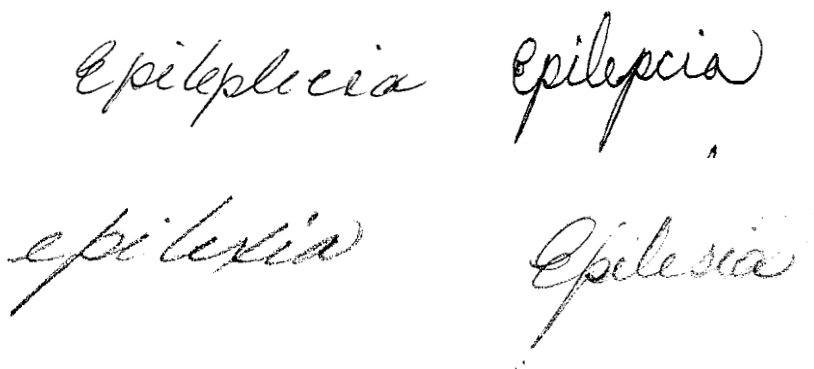 Epileplecia Epilepcia
epilexia Epilesia